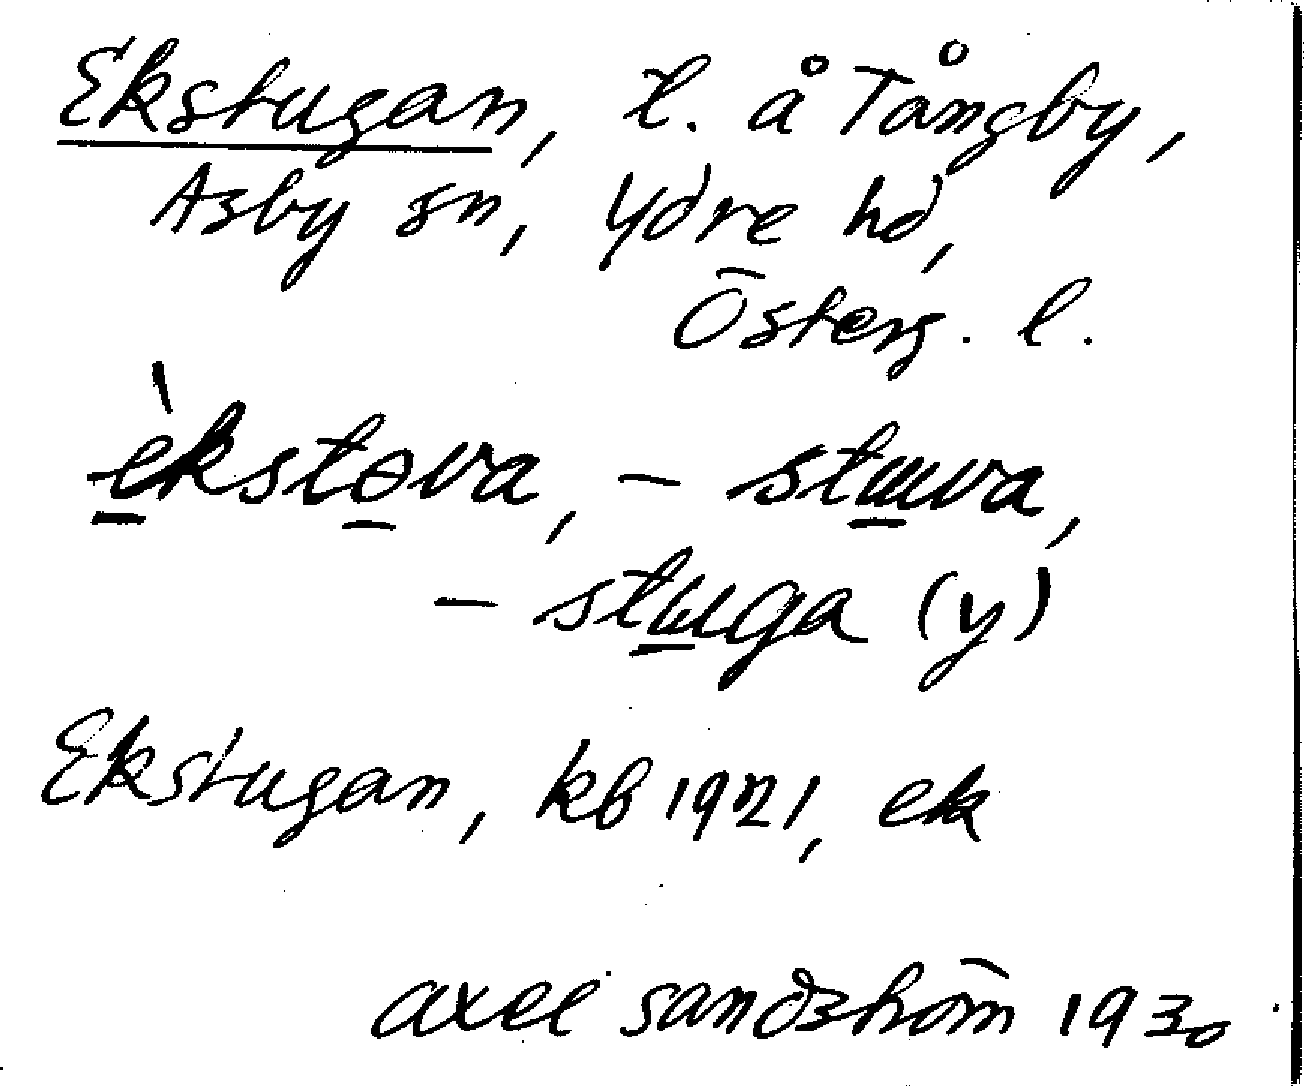 Ekstugan, l. å Tångby,
Asby sn, Ydre hd,
Österg. l.
èkstɵva, – stɯva,
– stɯga (y)
Ekstugan, kb 1921, ek
axel sandström 1930